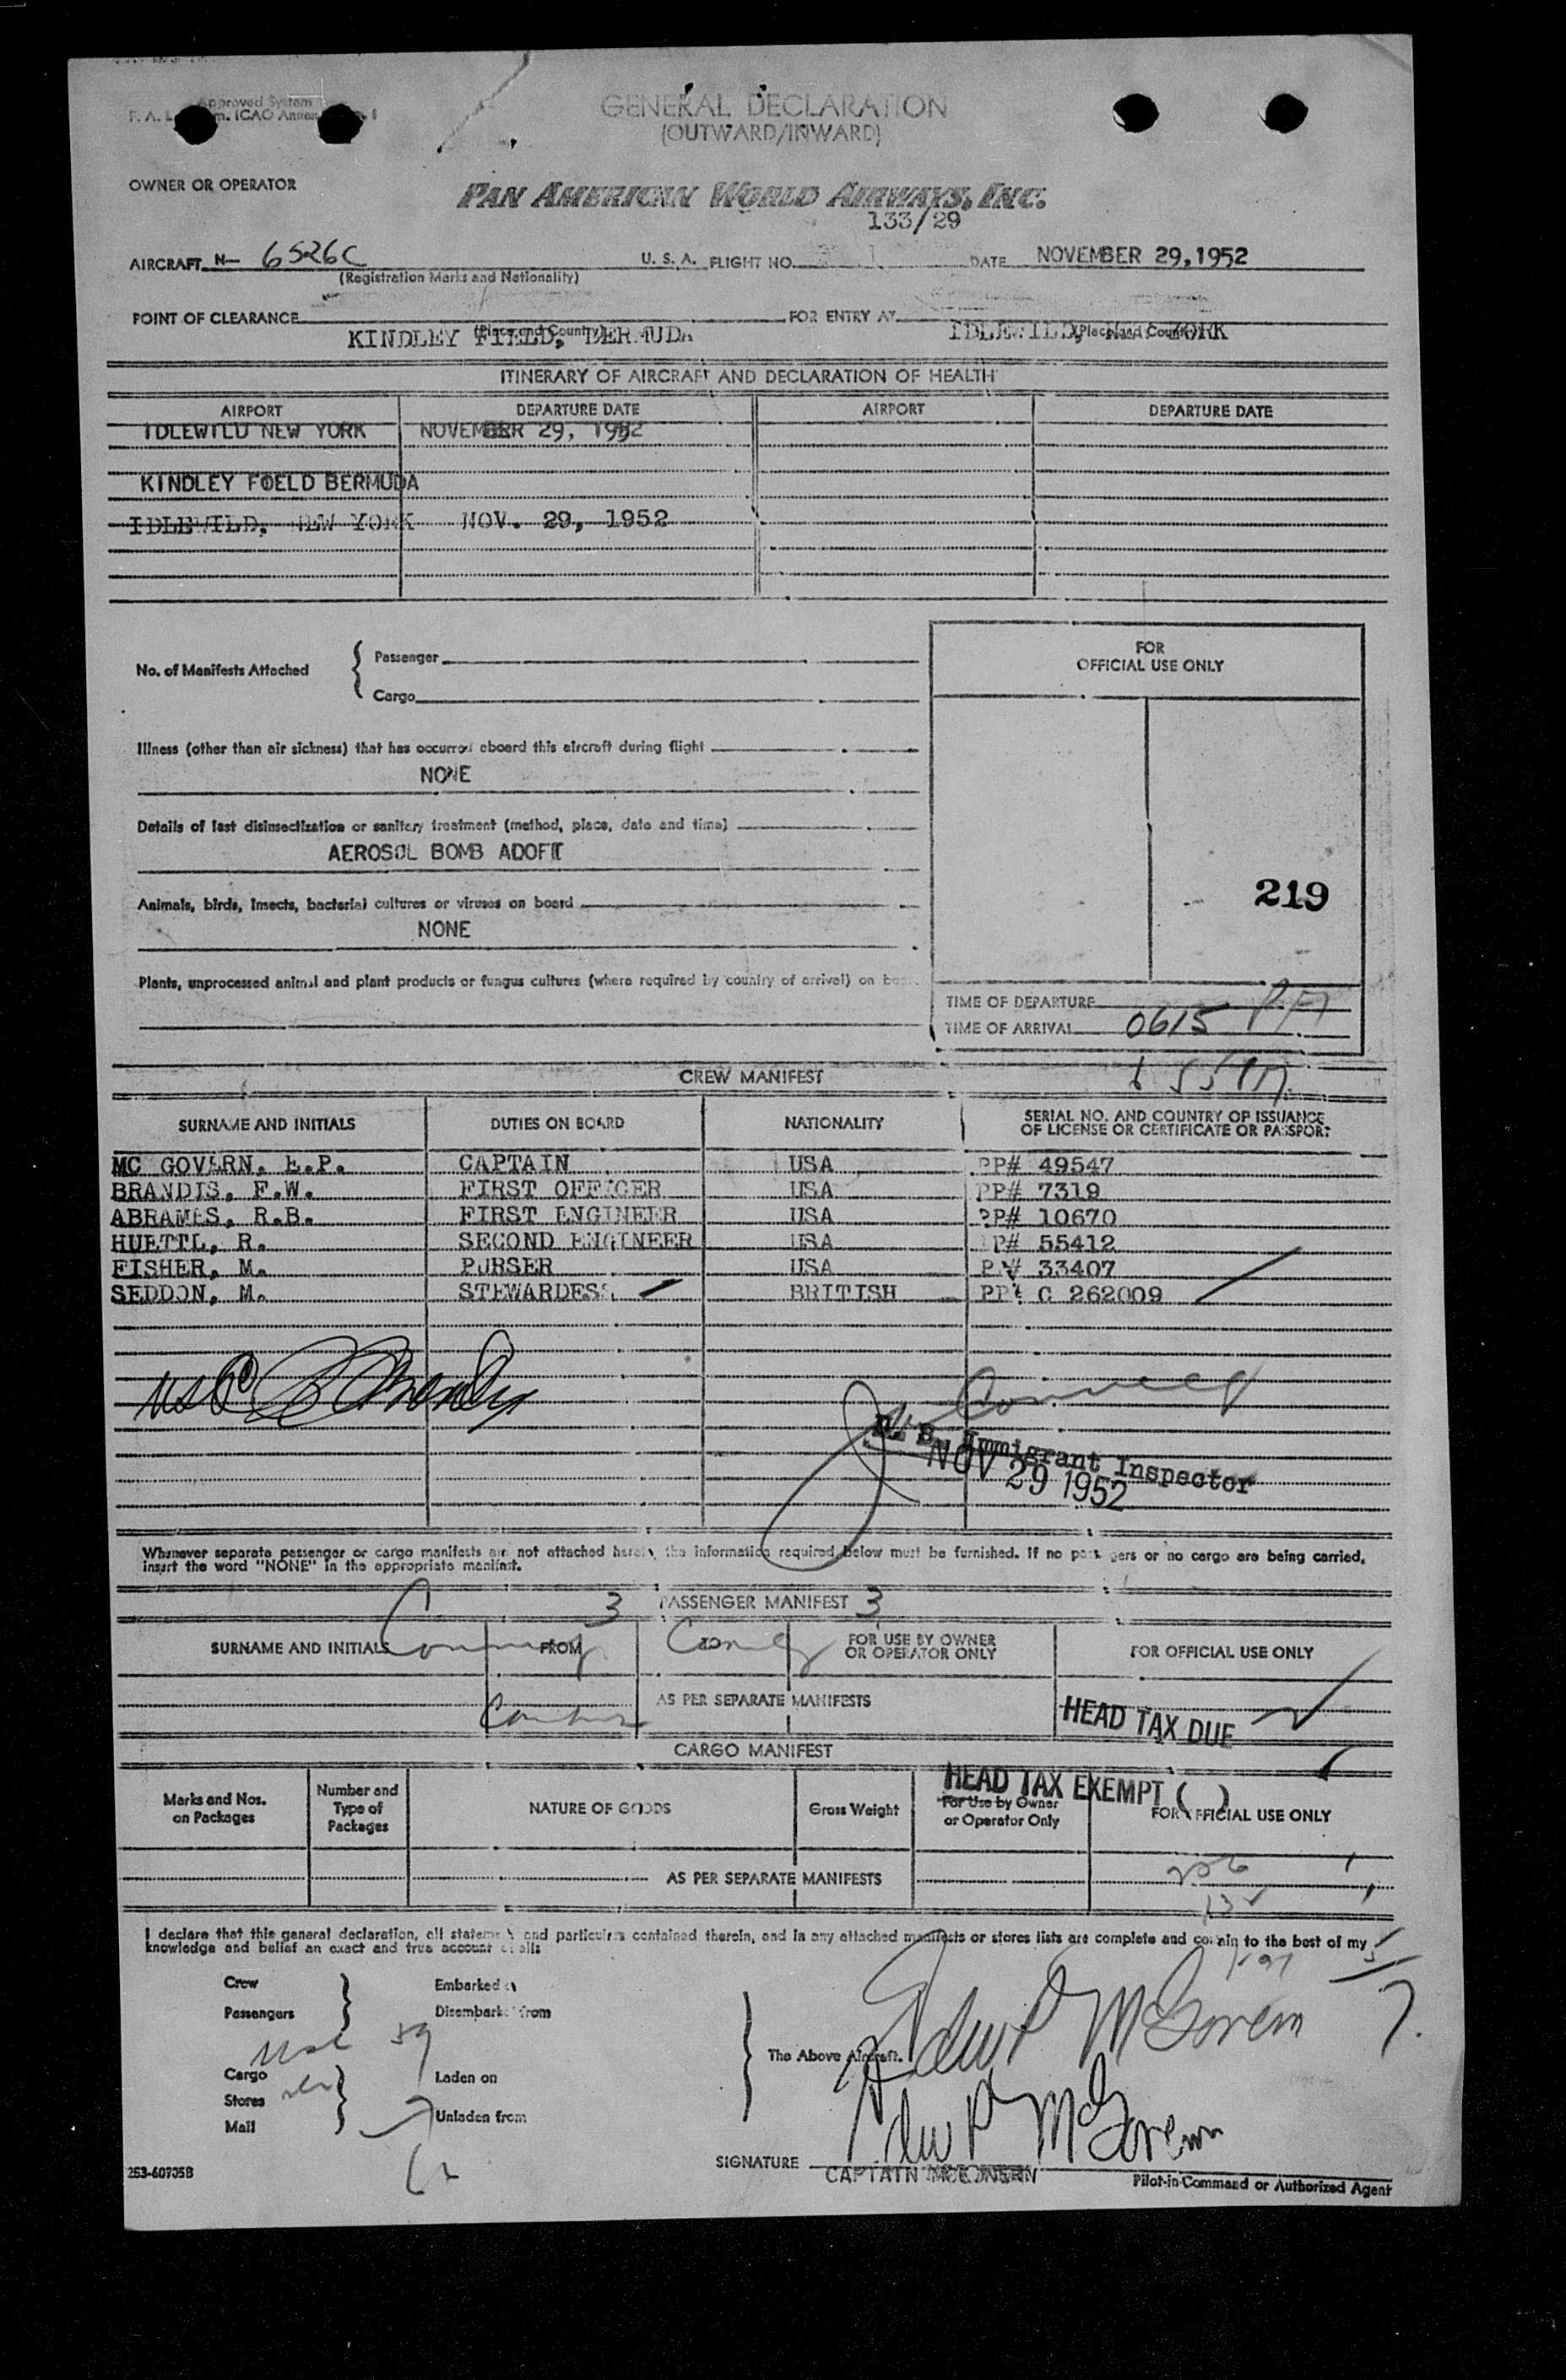 Approved System
GENERAL DECLARATION
(OUTWARD/INWARD)
OWNER OR OPERATOR
PAN AMERICAN WORLD AIRWAYS, INC.
133/29
AIRCRAFT N- 6526C U. S. A. FLIGHT NO. DATE NOVEMBER 29,1952
(Registration Marks and Nationality)
POINT OF CLEARANCE FOR ENTRY AT
KINDLEY FIELD, BERMUDA (Place and Country) IDLEWILD, YORK (Place and Country)
ITINERARY OF AIRCRAFT AND DECLARATION OF HEALTH
AIRPORT DEPARTURE DATE AIRPORT DEPARTURE DATE
IDLEWILD NEW YORK NOVEMBER 29, 1952
KINDLEY FOELD BERMUDA
IDLEWILD, NEW YORK NOV. 29, 1952
No. of Manifests Attached { Passenger
Cargo
FOR
OFFICIAL USE ONLY
Illness (other than air sickness) that has occurred aboard this aircraft during flight
NONE
Details of last disinsectization or sanitary treatment (method, place, date and time)
AEROSOL BOMB
219
Animals, birds, insects, bacterial cultures or viruses on board
NONE
Plants, unprocessed animal and plant products or fungus cultures (where required by country of arrival) on
TIME OF DEPARTURE
TIME OF ARRIVAL 0615 PM
CREW MANIFEST
SURNAME AND INITIALS DUTIES ON BOARD NATIONALITY SERIAL NO. AND COUNTRY OF ISSUANCE
OF LICENSE OR CERTIFICATE OR PASSPORT
MC GOVERN, E.P. CAPTAIN USA PP# 49547
BRANDIS, F.W. FIRST OFFICER USA PP# 7319
ABRAMES, R.B. FIRST ENGINEER USA PP# 10670
HUETTL, R. SECOND ENGINEER USA PP# 55412
FISHER, M. PURSER USA PP# 33407
SEDDON, M. STEWARDESS BRITISH PP# C 262009
U. S. Immigrant Inspector
NOV 29 1952
Whenever separate passenger or cargo manifests are not attached hereto, the information required below must be furnished. If no passengers or no cargo are being carried,
insert the word "NONE" in the appropriate manifest.
3 PASSENGER MANIFEST 3
SURNAME AND INITIALS FROM TO FOR USE BY OWNER
OR OPERATOR ONLY FOR OFFICIAL USE ONLY
AS PER SEPARATE MANIFESTS
HEAD TAX DUE
CARGO MANIFEST
HEAD TAX EXEMPT ( )
Marks and Nos.
on Packages
Number and
Type of
Packages
NATURE OF GOODS
Gross Weight
For Use by Owner
or Operator Only
FOR OFFICIAL USE ONLY
AS PER SEPARATE MANIFESTS
I declare that this general declaration, all statements and particulars contained therein, and in any attached manifests or stores lists are complete and contain to the best of my
knowledge and belief an exact and true account of all:
Crew
Passengers
Embarked
Disembarked from
Cargo
Stores
Mail
Laden on
Unladen from
The Above Aircraft.
Edw P McGovern
Edw P McGovern
SIGNATURE
CAPTAIN MCGOVERN
Pilot-in-Command or Authorized Agent
253-60705B